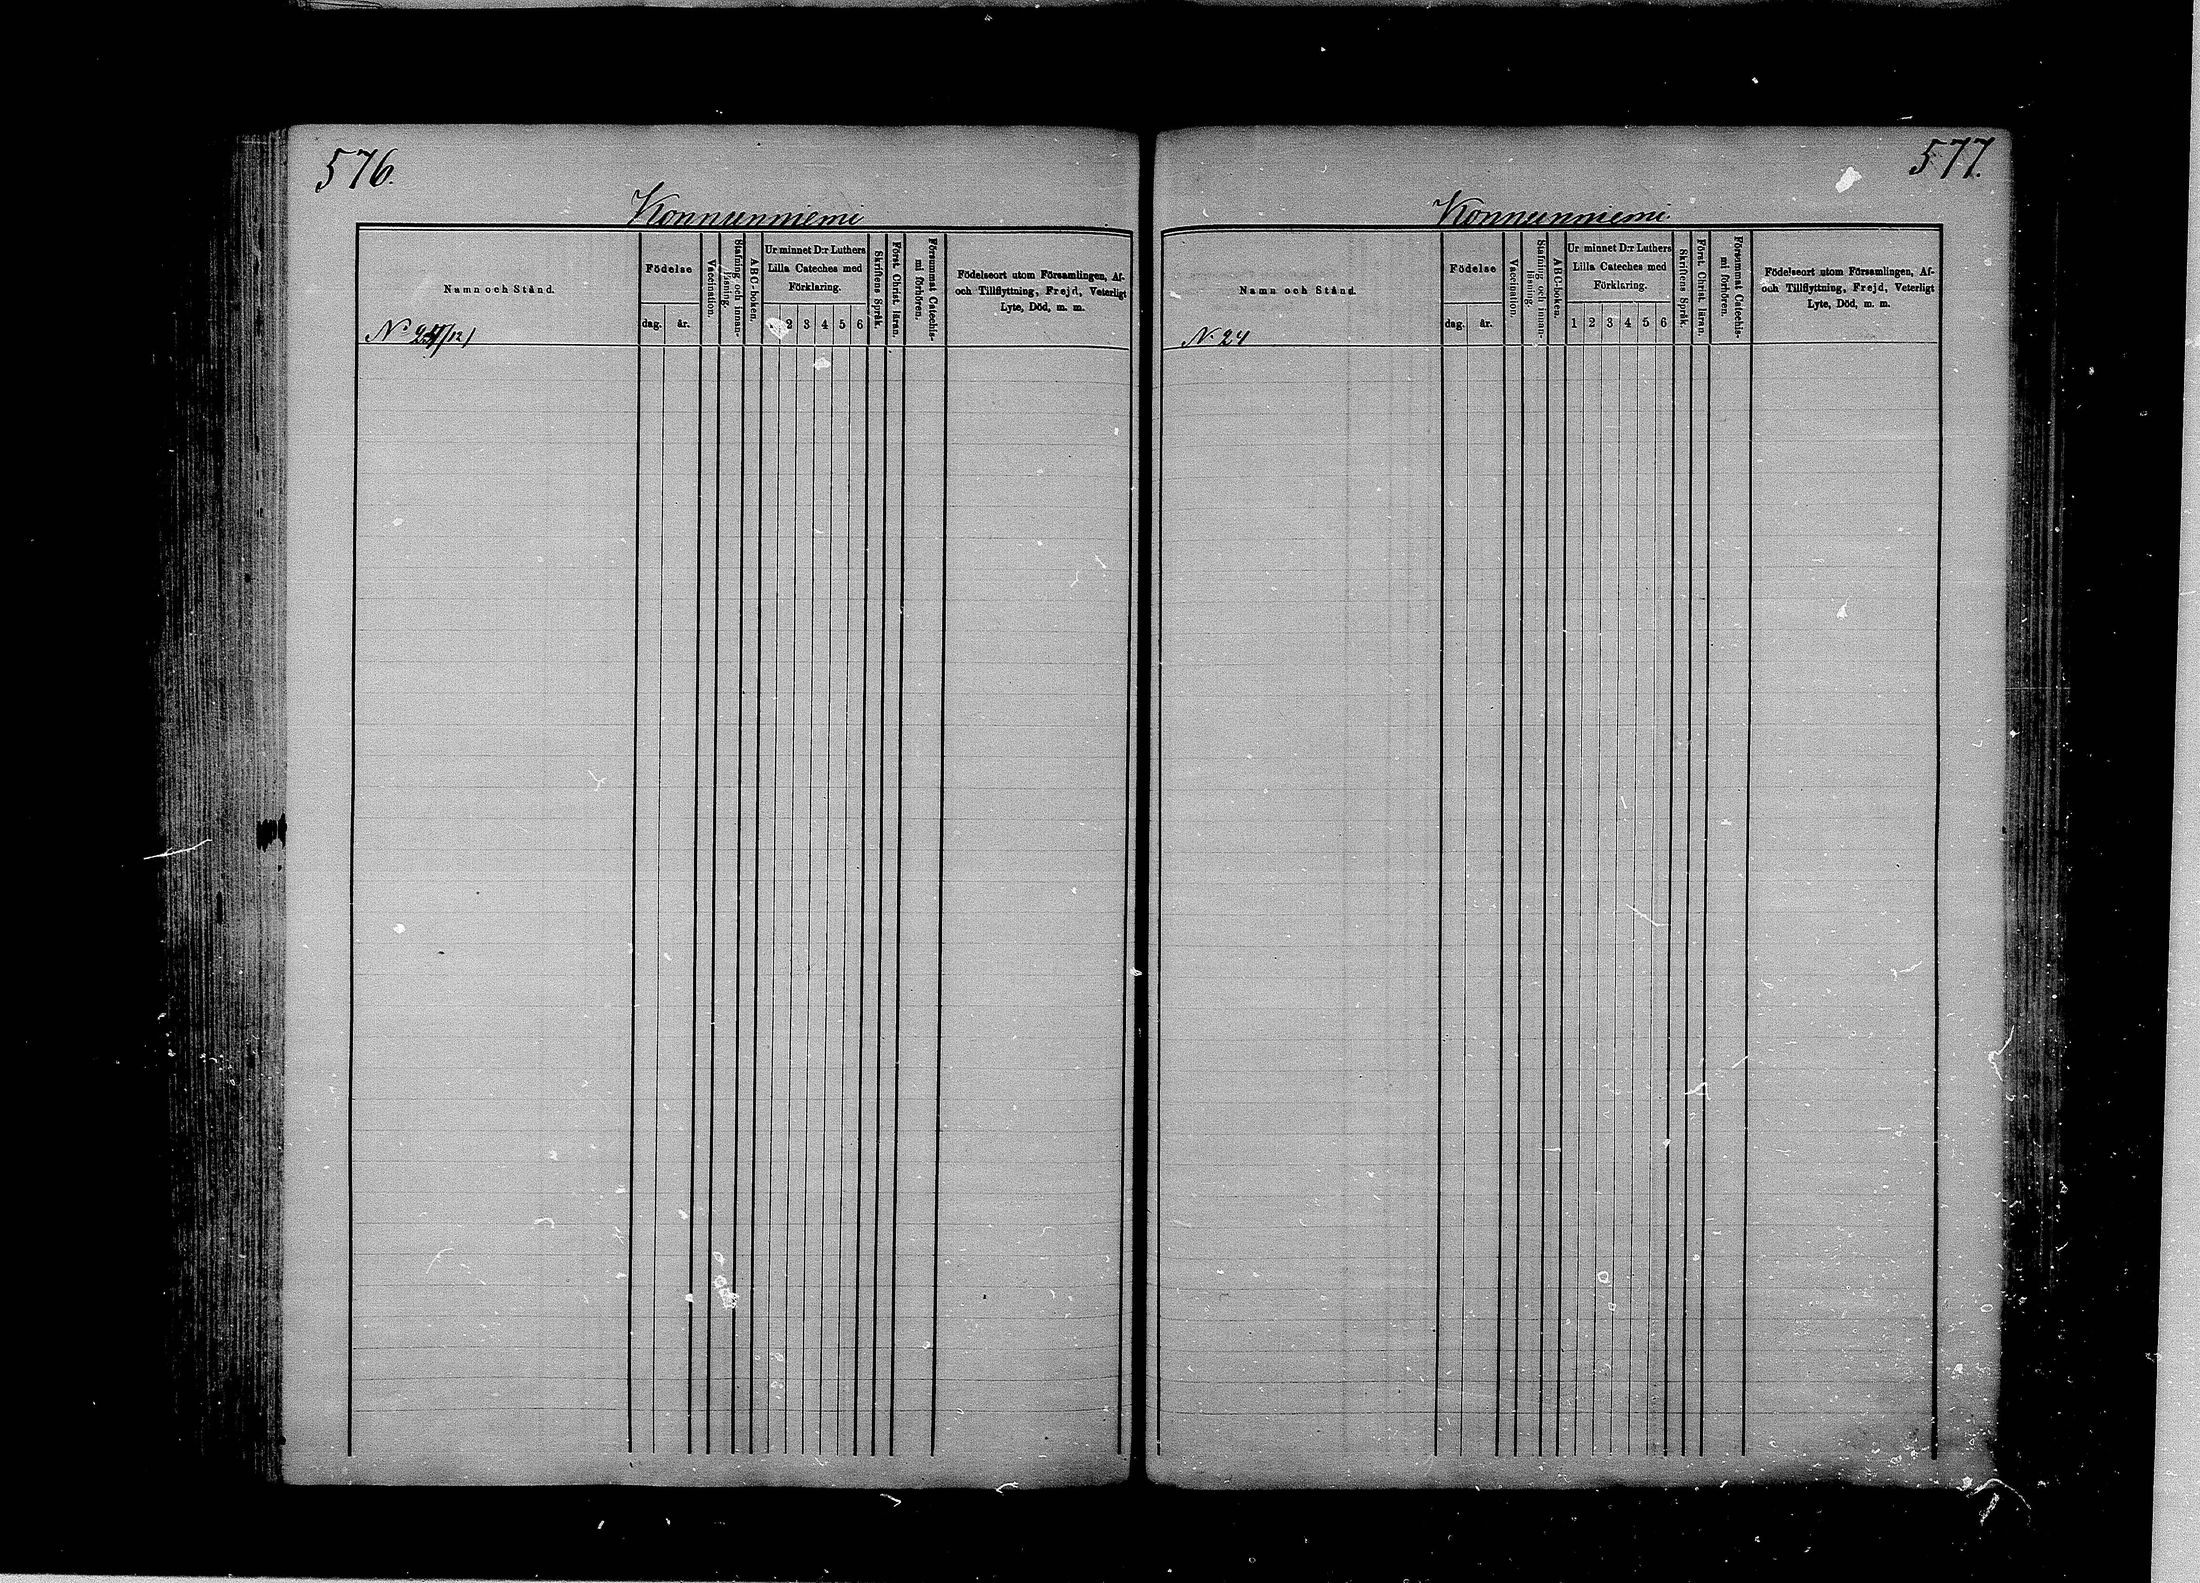 576.
Konnunniemi
Namn och Stånd.
Födelse
dag.
år.
Vaccination.
Stafning och innan-
läsning.
ABC-boken.
Ur minnet D:r Luthers
Lilla Cateches med
Förklaring.
2 3 4 5 6
Skriftens Språk.
Först. Christ. läran.
Försummat Catechis-
mi förhören.
Födelseort utom Församlingen, Af-
och Tillflyttning, Frejd, Veterligt
Lyte, Död, m. m.
N
577.
Konnunniemi.
Namn och Stånd.
Födelse
dag.
år.
Vaccination.
Stafning och innan-
läsning.
ABC-boken.
Ur minnet D:r Luthers
Lilla Cateches med
Förklaring.
1 2 3 4 5 6
Skriftens Språk.
Först. Christ. läran.
Försummat Catechis-
mi förhören.
Födelseort utom Församlingen, Af-
och Tillflyttning, Frejd, Veterligt
Lyte, Död, m. m.
N. 24